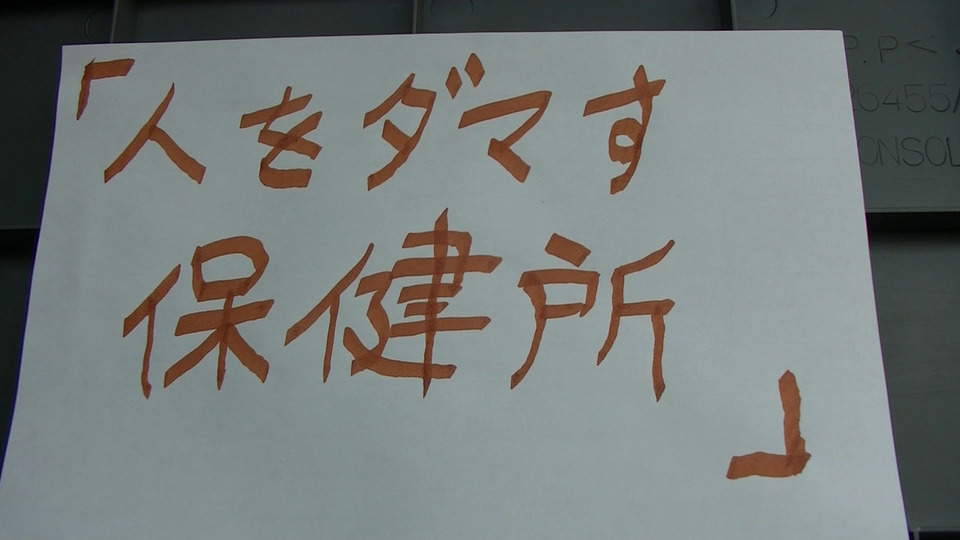 「人をダマす
保健所
」
P.P<
26455/
CONSOL